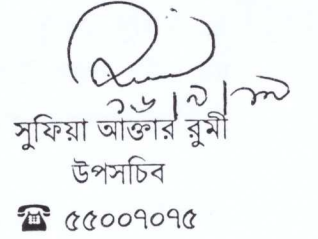 ১৬|৯|১৯
সুফিয়া আক্তার রুমী
উপসচিব
☎ ৫৫০০৭০৭৫